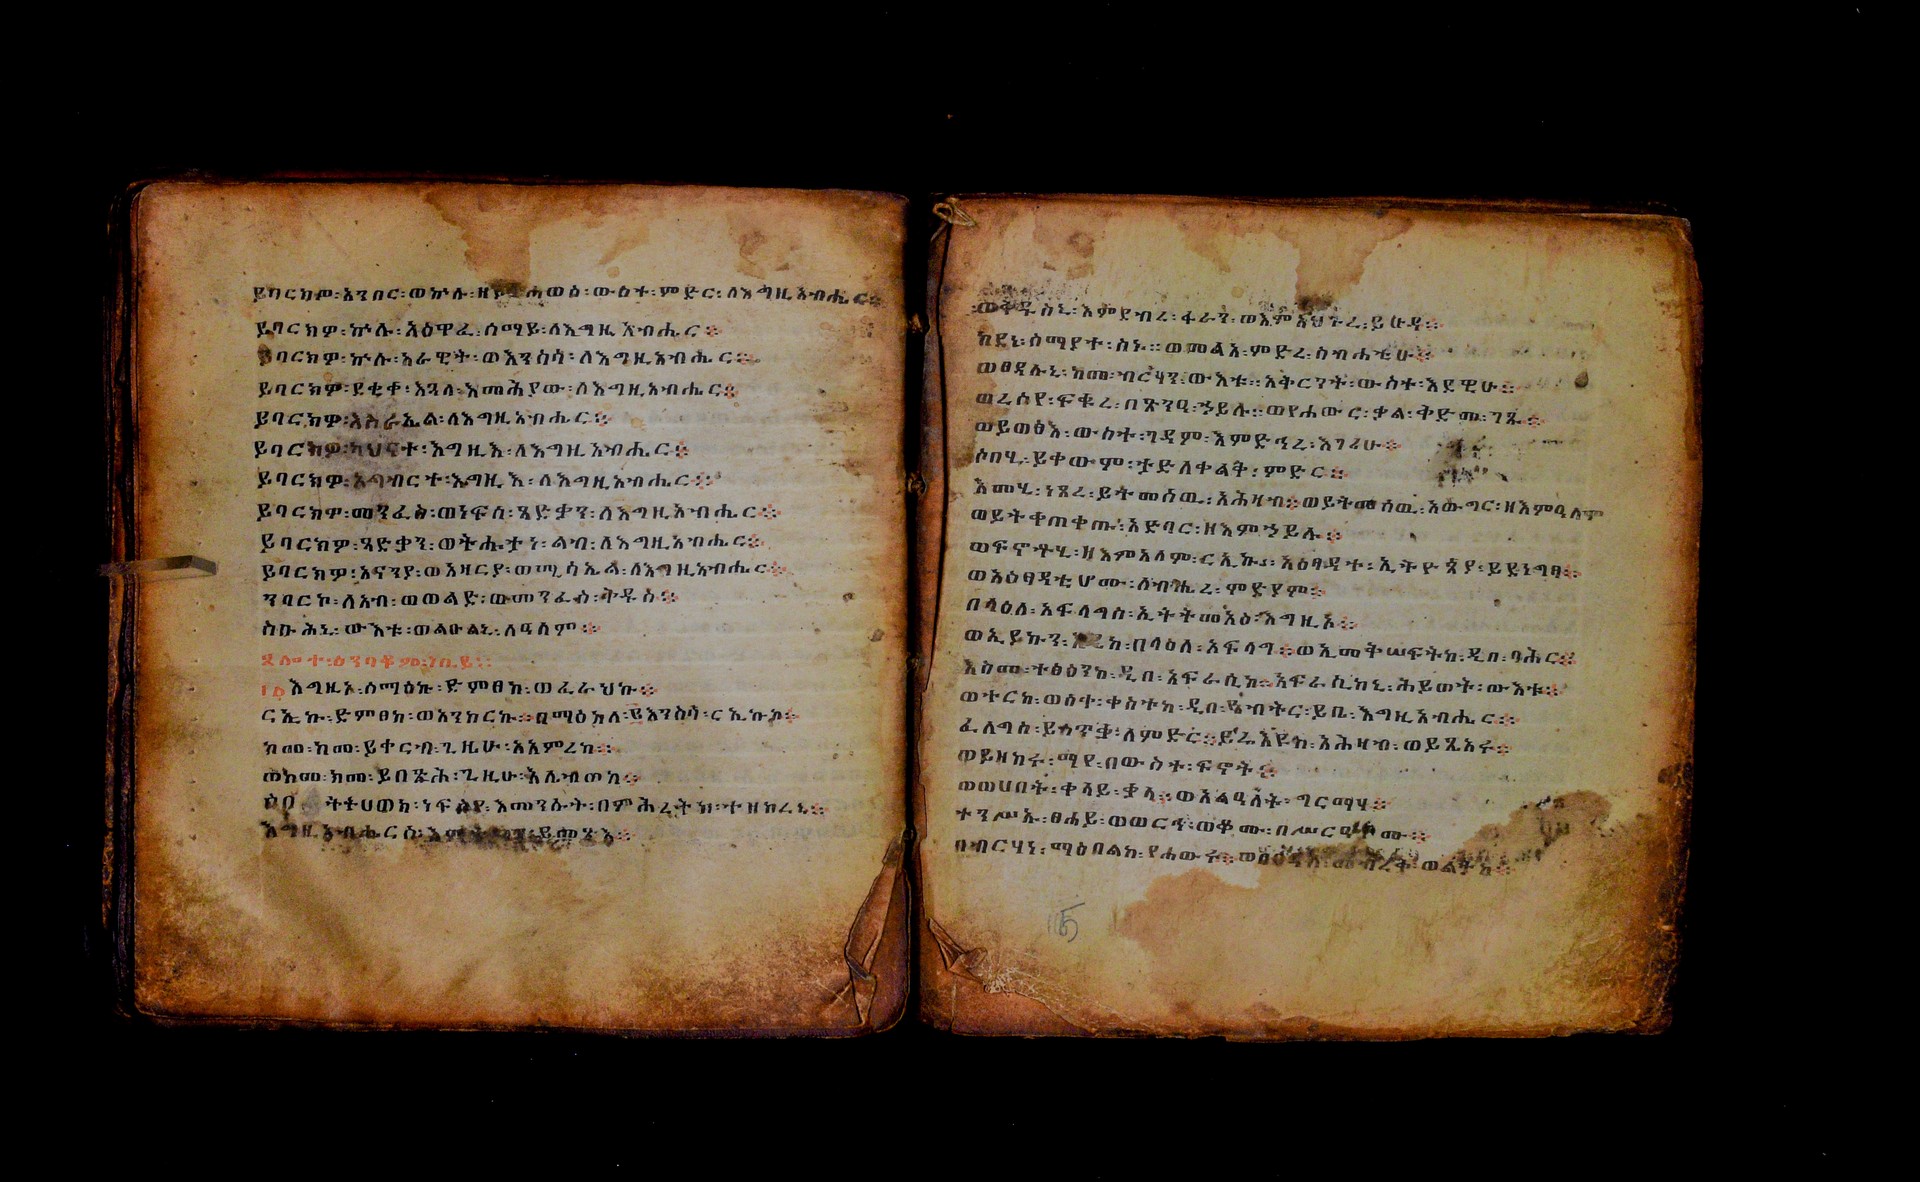 ይባርክዎ፡አንበር፡ወኵሉ፡ዘይትሐወስ፡ውስተ፡ምድር፡ለእግዚአብሔር፨
ይባርክዎ፡ኵሉ፡አዕዋፈ፡ሰማይ፡ለእግዚአብሔር፨
ይባርክዎ፡ኵሉ፡አራዊት፡ወእንስሳ፡ለእግዚአብሔር፨
ይባርክዎ፡ደቂቀ፡እጓለ፡እመሕያው፡ለእግዚአብሔር፨
ይባርክዎ፡እስራኤል፡ለእግዚአብሔር፨
ይባርክዎ፡ካህናተ፡እግዚእ፡ለእግዚአብሔር፨
ይባርክዎ፡አግብርተ፡እግዚእ፡ለእግዚአብሔር፨
ይባርክዎ፡መንፈስ፡ወነፍስ፡ጻድቃን፡ለእግዚአብሔር፨
ይባርክዎ፡ጻድቃን፡ወትሑታነ፡ልብ፡ለእግዚአብሔር፨
ይባርክዎ፡አናንያ፡ወአዛርያ፡ወሚሳኤል፡ለእግዚአብሔር፨
ንባርኮ፡ለአብ፡ወወልድ፡ወመንፈስ፡ቅዱስ፨
ስቡሕኒ፡ውእቱ፡ወልዑልኒ፡ለዓለም፨
ጸሎተ፡ዕንባቆም፡ነቢይ፨
እግዚኦ፡ሰማዕኩ፡ድምፀከ፡ወፈራህኩ፨
ርኢኩ፡ድምፀከ፡ወአንከርኩ፨በማዕከለ፡ይእንስሳ፡ርኢኩከ፨
ከመ፡ከመ፡ይቀርብ፡ጊዜሁ፡አአምረከ፨
ወከመ፡ከመ፡ይበጽሕ፡ጊዜሁ፡እሌብወከ፨
ሶበ፡ትትሀወክ፡ነፍስየ፡እመንሱት፡በምሕረትከ፡ተዘከረኒ፨
እግዚአብሔርሰ፡እምቴማን፡ይመጽእ፨
ወቅዱስኒ፡እምደብረ፡ፋራን፡ወእምአህጉረ፡ይሁዳ፨
ከደነ፡ሰማያተ፡ስኑ፨ወመልአ፡ምድረ፡ስብሐቲሁ፨
ወፀዳሉኒ፡ከመ፡ብርሃን፡ውእቱ፨አቅርንት፡ውስተ፡እደዊሁ፨
ወረሰየ፡ፍቁረ፡በጽንዓ፡ኃይሉ፨ወየሐውር፡ቃል፡ቅድመ፡ገጹ፨
ወይወፅእ፡ውስተ፡ገዳም፡እምድኅረ፡እገሪሁ፨
ሶበሂ፡ይቀውም፡ታድለቀልቅ፡ምድር፨
እመሂ፡ነጸረ፡ይትመሰዉ፡አሕዛብ፨ወይትመሰዉ፡አውግር፡ዘእምዓለም
ወይትቀጠቀጡ፡አድባር፡ዘእምኃይሉ፨
ወፍኖትሂ፡ዘእምአለም፡ርኢኩ፡አዕፃዳተ፡ኢትዮጵያ፡ይደነግፃ፨
ወአዕፃዳቲሆሙ፡ለብሔረ፡ምድያም፨
በላዕለ፡አፍላግስ፡ኢትትመአዕ፡እግዚኦ፨
ወኢይኩን፡መዐትከ፡በላዕለ፡አፍላግ፨ወኢመቅሠፍትከ፡ዲበ፡ባሕር፨
እስመ፡ተፅዕንከ፡ዲበ፡አፍራሲከ፨አፍራሲከኒ፡ሕይወት፡ውእቱ፨
ወተርከ፡ወሰተ፡ቀስተከ፡ዲበ፡ዔብትር፡ይቤ፡እግዚአብሔር፨
ፈለግሰ፡ይሳጥቃ፡ለምድር፨ይሬእዩከ፡አሕዛብ፡ወይጼአሩ፨
ወይዘከሩ፡ማየ፡በውስተ፡ፍኖት፨
ወወሀበት፡ቀላይ፡ቃላ፨ወእልዓለት፡ግርማሃ፨
ተንሥአ፡ፀሐይ፡ወወርኅ፡ወቆሙ፡በሥርዓቶሙ፨
በብርሃነ፡ማዕበልከ፡የሐውሩ፨
115